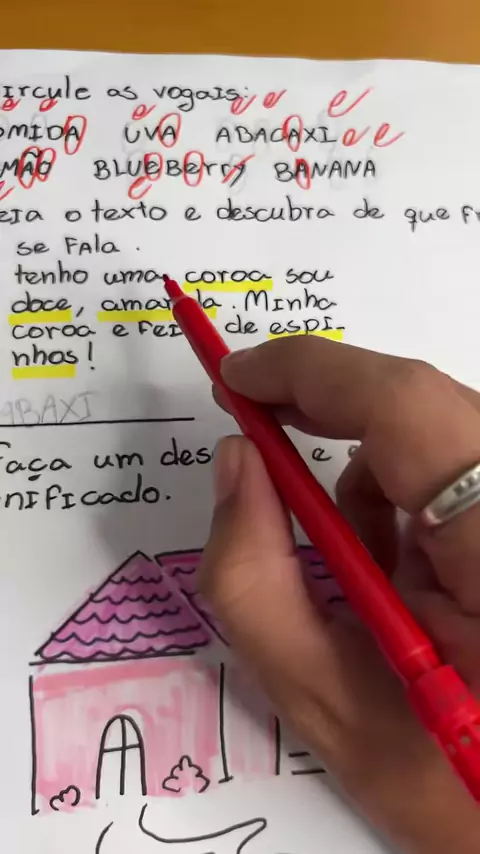 ircule as vogais:
OMIDA UVA ABACAXI
MÃO BLUEBErry BANANA
eia o texto e descubra de que Fr
se Fala.
tenho uma coroa sou
doce, amar la. Minha
coroa e Fei de espi-
nhos!
ABAXI
Faça um des e
nificado.